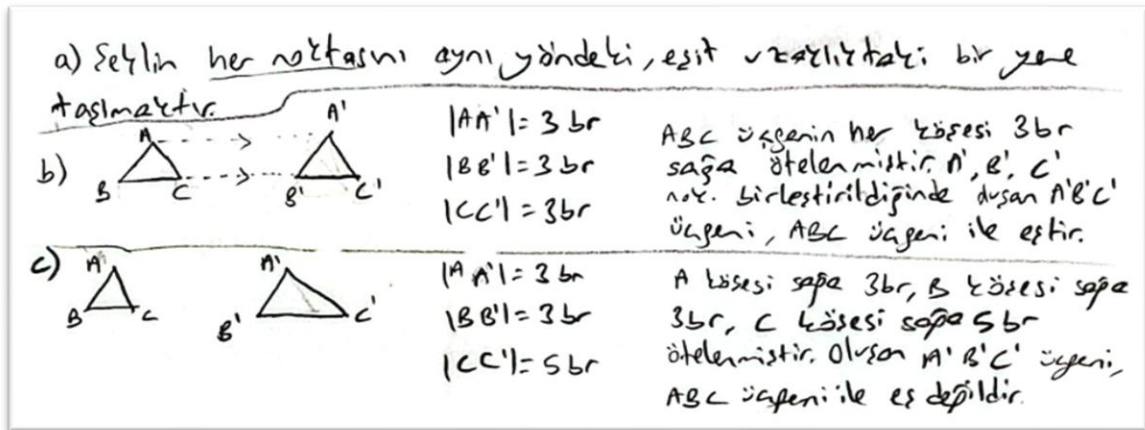 a) Şeklin her noktasını aynı yöndeki, eşit uzaklıktaki bir yere
taşımaktır.
b)
A
B
C
A'
B'
C'
|AA'|= 3 br
|BB'|= 3 br
|CC'|= 3br
ABC üçgenin her köşesi 3br
sağa ötelenmiştir. A', B', C'
nok. birleştirildiğinde oluşan A'B'C'
üçgeni, ABC üçgeni ile eştir.
c)
A
B
C
A'
B'
C'
|AA'|= 3 br
|BB'|= 3 br
|CC'|= 5 br
A köşesi sağa 3br, B köşesi sağa
3br, C köşesi sağa 5 br
ötelenmiştir. Oluşan A'B'C' üçgeni,
ABC üçgeni ile eş değildir.